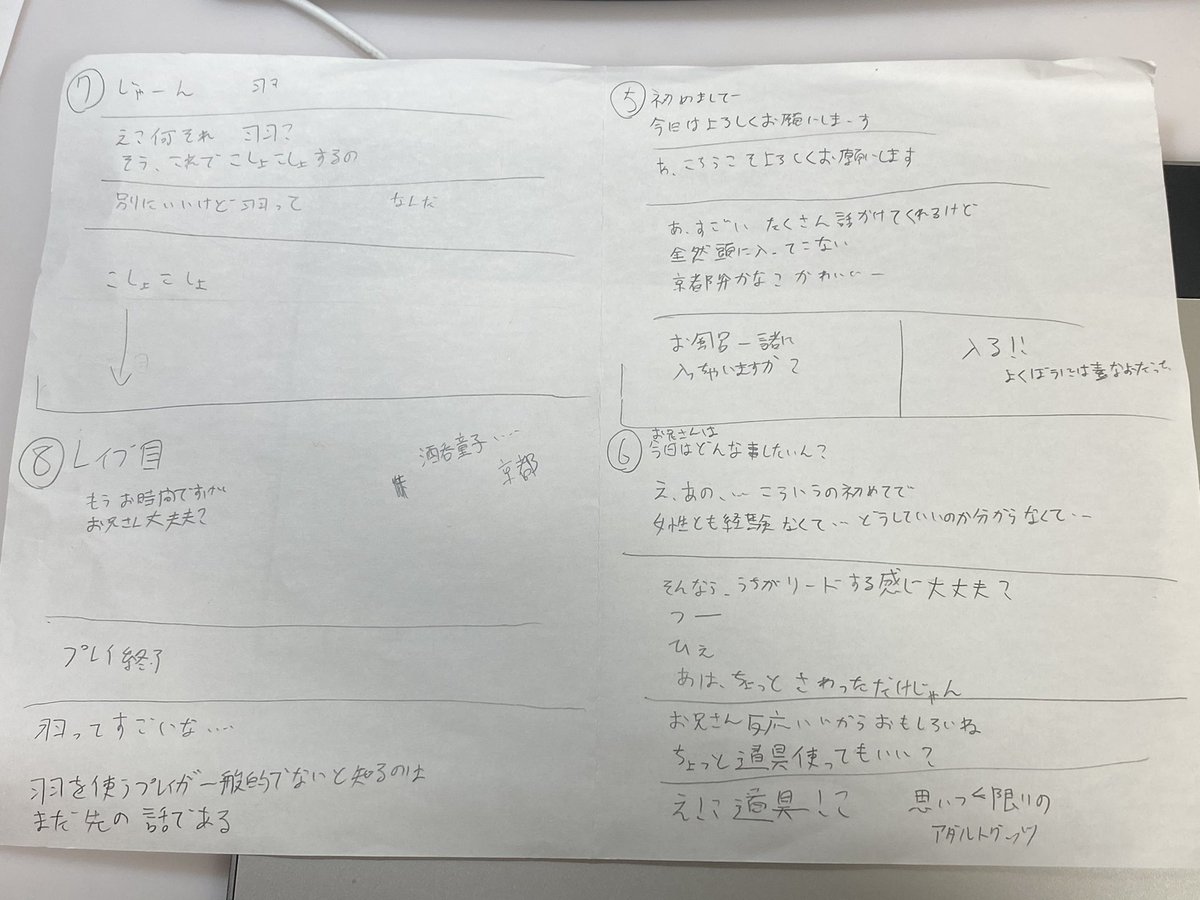 ⑤ 初めましてー
今日はよろしくお願いしまーす
あ、こちらこそよろしくお願いします
あ、すごい たくさん話かけてくれるけど
全然頭に入ってこない
京都弁かな? かわいいー
お風呂一諸に
入っちゃいますか?
入る!!
よくぼうには素なおだった
⑥ お兄さんは
今日はどんな事したいん?
え、あの、… こういうの初めてで
女性とも経験なくて… どうしていいのか分からなくて…
そんなら、うちがリードする感じ大丈夫?
つー
ひぇ
あは、ちょっと さわっただけじゃん
お兄さん反応いいからおもしろいね
ちょっと道具使ってもいい?
え!? 道具!?
思いつく限りの
アダルトグッツ
⑦ じゃーん 羽
え? 何それ 羽?
そう、これでこしょこしょするの
別にいいけど 羽って なんだ
こしょこしょ
⑧ レイプ目
もうお時間ですけど
お兄さん大丈夫?
酒呑童子….
京都
プレイ終了
羽ってすごいな….
羽を使うプレイが一般的でないと知るのは
まだ先の話である